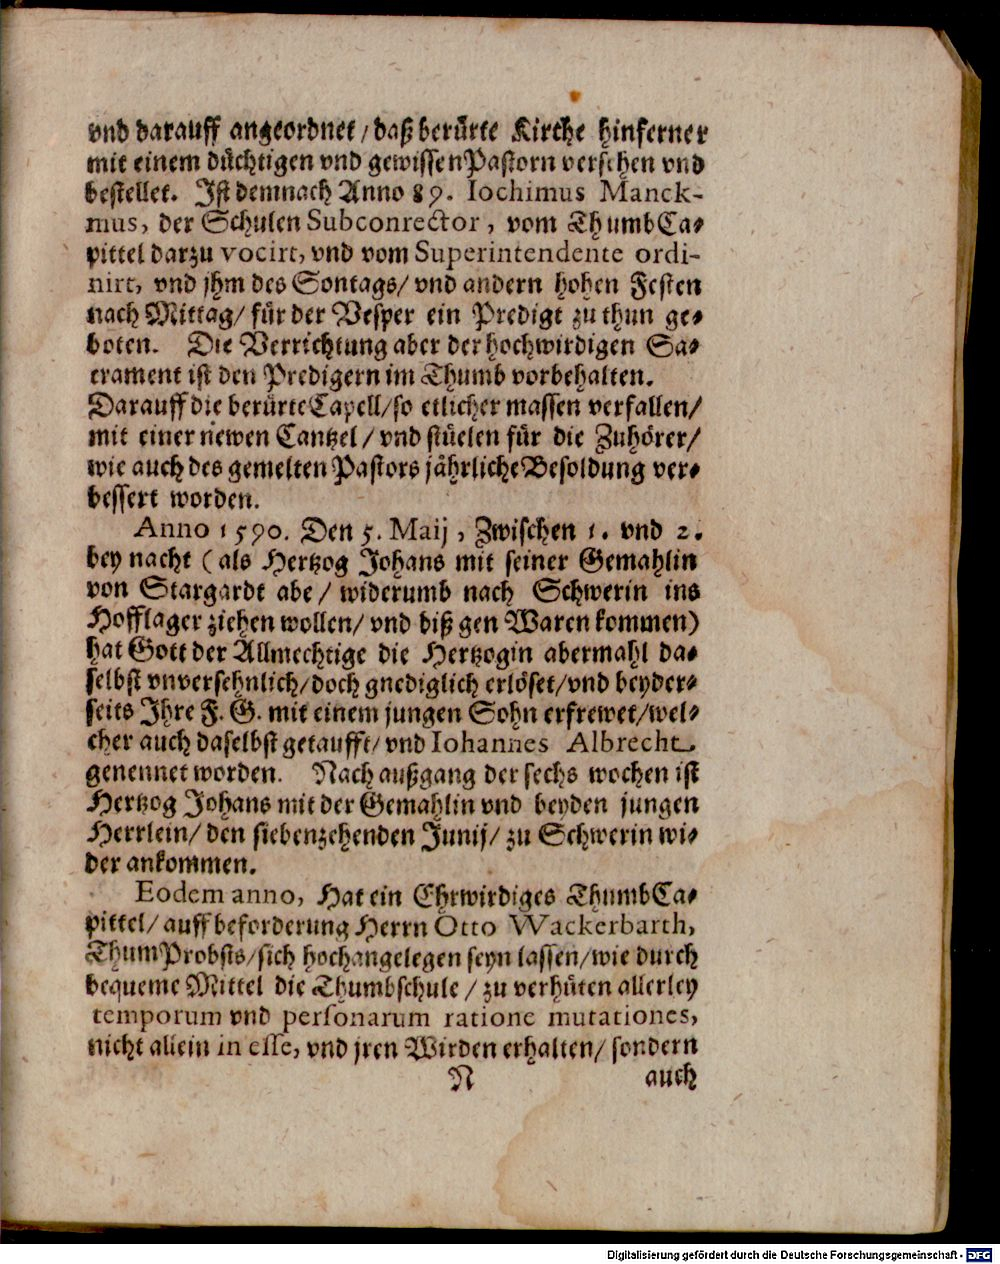 vnd darauff angeordnet / daß berürte Kirche hinferner
mit einem düchtigen vnd gewissen Pastorn versehen vnd
bestellet. Ist demnach Anno 89. Iochimus Manck-
mus, der Schulen Subconrector, vom ThumbCa-
pittel darzu vocirt, vnd vom Superintendente ordi-
nirt, vnd jhm des Sontags/ vnd andern hohen Festen
nach Mittag/ für der Vesper ein Predigt zu thun ge-
boten. Die Verrichtung aber der hochwirdigen Sa-
crament ist den Predigern im Thumb vorbehalten.
Darauff die berürte Capell/ so etlicher massen verfallen/
mit einer newen Cantzel / vnd stüelen für die Zuhörer/
wie auch des gemelten Pastors jährliche Besoldung ver-
bessert worden.
Anno 1590. Den 5. Maij, Zwischen 1. vnd 2.
bey nacht (als Hertzog Johans mit seiner Gemahlin
von Stargardt abe / widerumb nach Schwerin ins
Hofflager ziehen wollen/ vnd biß gen Waren kommen)
hat Gott der Allmechtige die Hertzogin abermahl da-
selbst vnversehnlich/ doch gnediglich erlöset/ vnd beyder-
seits Ihre F. G. mit einem jungen Sohn erfrewet/ wel-
cher auch daselbst getaufft/ vnd Iohannes Albrecht
genennet worden. Nach außgang der sechs wochen ist
Hertzog Johans mit der Gemahlin vnd beyden jungen
Herrlein/ den siebenzehenden Junij/ zu Schwerin wi-
der ankommen.
Eodem anno, Hat ein Ehrwirdiges ThumbCa-
pittel/ auff beforderung Herrn Otto Wackerbarth,
ThumProbsts/ sich hochangelegen seyn lassen/ wie durch
bequeme Mittel die Thumbschule / zu verhüten allerley
temporum vnd personarum ratione mutationes,
nicht allein in esse, vnd jren Wirden erhalten/ sondern
N auch
Digitalisierung gefördert durch die Deutsche Forschungsgemeinschaft - DFG